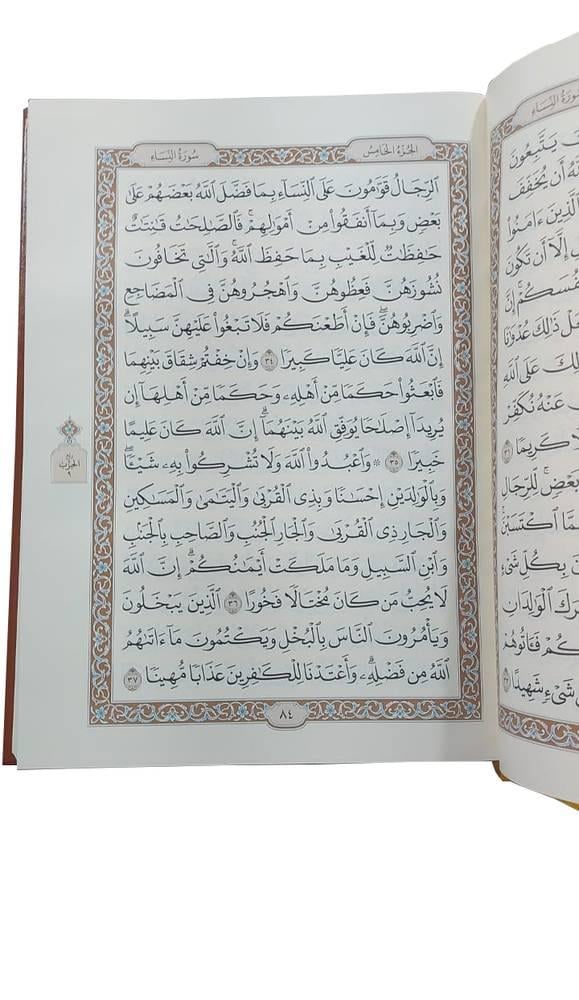 سُورَةُ النِّسَاءِ
الجُزْءُ الخَامِسُ
ٱلرِّجَالُ قَوَّٰمُونَ عَلَى ٱلنِّسَآءِ بِمَا فَضَّلَ ٱللَّهُ بَعۡضَهُمۡ عَلَىٰ
بَعۡضٖ وَبِمَآ أَنفَقُواْ مِنۡ أَمۡوَٰلِهِمۡۚ فَٱلصَّٰلِحَٰتُ قَٰنِتَٰتٌ
حَٰفِظَٰتٞ لِّلۡغَيۡبِ بِمَا حَفِظَ ٱللَّهُۚ وَٱلَّٰتِي تَخَافُونَ
نُشُوزَهُنَّ فَعِظُوهُنَّ وَٱهۡجُرُوهُنَّ فِي ٱلۡمَضَاجِعِ
وَٱضۡرِبُوهُنَّۖ فَإِنۡ أَطَعۡنَكُمۡ فَلَا تَبۡغُواْ عَلَيۡهِنَّ سَبِيلًاۗ
إِنَّ ٱللَّهَ كَانَ عَلِيّٗا كَبِيرٗا ٣٤ وَإِنۡ خِفۡتُمۡ شِقَاقَ بَيۡنِهِمَا
فَٱبۡعَثُواْ حَكَمٗا مِّنۡ أَهۡلِهِۦ وَحَكَمٗا مِّنۡ أَهۡلِهَآ إِن
يُرِيدَآ إِصۡلَٰحٗا يُوَفِّقِ ٱللَّهُ بَيۡنَهُمَآۗ إِنَّ ٱللَّهَ كَانَ عَلِيمًا
خَبِيرٗا ٣٥ ۞ وَٱعۡبُدُواْ ٱللَّهَ وَلَا تُشۡرِكُواْ بِهِۦ شَيۡـٔٗاۖ
وَبِٱلۡوَٰلِدَيۡنِ إِحۡسَٰنٗا وَبِذِي ٱلۡقُرۡبَىٰ وَٱلۡيَتَٰمَىٰ وَٱلۡمَسَٰكِينِ
وَٱلۡجَارِ ذِي ٱلۡقُرۡبَىٰ وَٱلۡجَارِ ٱلۡجُنُبِ وَٱلصَّاحِبِ بِٱلۡجَنۢبِ
وَٱبۡنِ ٱلسَّبِيلِ وَمَا مَلَكَتۡ أَيۡمَٰنُكُمۡۗ إِنَّ ٱللَّهَ
لَا يُحِبُّ مَن كَانَ مُخۡتَالٗا فَخُورًا ٣٦ ٱلَّذِينَ يَبۡخَلُونَ
وَيَأۡمُرُونَ ٱلنَّاسَ بِٱلۡبُخۡلِ وَيَكۡتُمُونَ مَآ ءَاتَىٰهُمُ
ٱللَّهُ مِن فَضۡلِهِۦۗ وَأَعۡتَدۡنَا لِلۡكَٰفِرِينَ عَذَابٗا مُّهِينٗا ٣٧
٨٤
ربع
الحزب
٩
سُورَةُ النِّسَاءِ
يَتَّبِعُونَ
أَن يُخَفِّفَ
ٱلَّذِينَ ءَامَنُواْ
إِلَّآ أَن تَكُونَ
إِنَّ
ذَٰلِكَ عُدۡوَٰنٗا
عَلَى ٱللَّهِ
عَنۡهُ نُكَفِّرۡ
كَرِيمٗا ٣١
بَعۡضٖۚ لِّلرِّجَالِ
ٱكۡتَسَبۡنَۚ
بِكُلِّ شَيۡءٍ
ٱلۡوَٰلِدَانِ
فَـَٔاتُوهُمۡ
شَيۡءٖ شَهِيدًا